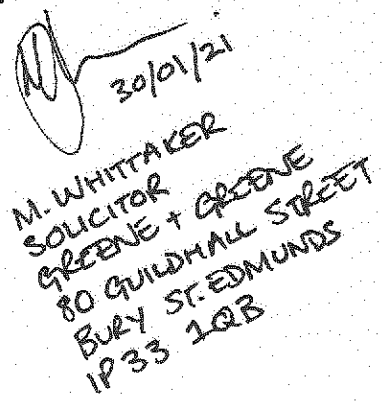 30/01/21
M. WHITTAKER
SOLICITOR
GREENE + GREENE
80 GUILDHALL STREET
BURY ST. EDMUNDS
IP33 1QB